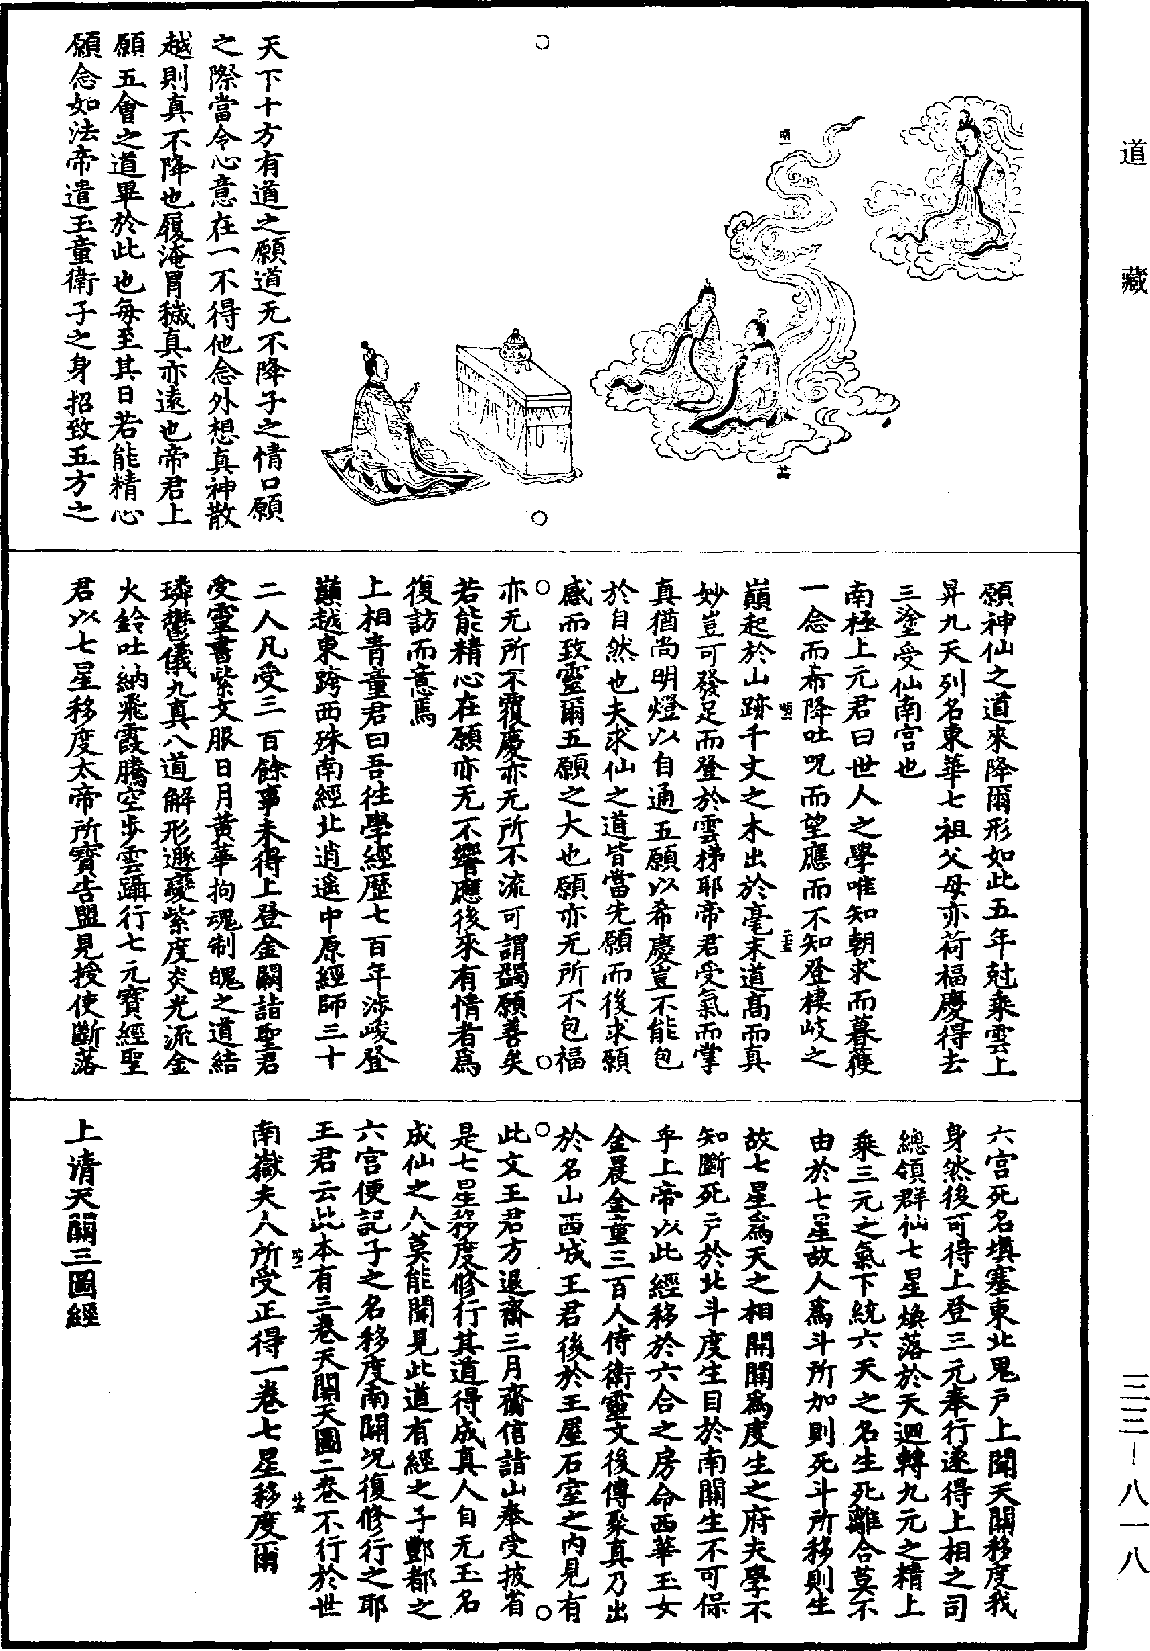 道藏
天下十方有道之願道无不降子之情口願
之際當令心意在一不得他念外想真神散
越則真不降也履淹冒穢真亦遠也帝君上
願五會之道畢於此也每至其日若能精心
願念如法帝遣玉童衛子之身招致五方之
願神仙之道來降爾形如此五年尅乘雲上
昇九天列名東華七祖父母亦荷福慶得去
三塗受仙南宫也
南極上元君曰世人之學唯知朝求而暮獲
一念而希降吐呪而望應而不知登棲岐之
巔起於山跡千丈之木出於毫末道高而真
妙豈可發足而登於雲梯耶帝君受氣而掌
真猶尚明燈以自通五願以希慶豈不能包
於自然也夫求仙之道皆當先願而後求願
感而致靈爾五願之大也願亦无所不包福
亦无所不覆慶亦无所不流可謂蠲願善矣
若能精心在願亦无不響應後來有情者爲
復訪而意焉
上相青童君曰吾往學經歷七百年涉峻登
巔越東跨西殊南經北逍遥中原經師三十
二人凡受三百餘事未得上登金闕詣聖君
受靈書紫文服日月黄華拘魂制魄之道結
璘鬱儀九真八道解形遯變紫度炎光流金
火鈴吐納飛霞騰空步雲躡行七元寶經聖
君以七星移度太帝所寶告盟見授使斷落
六宫死名塡塞東北鬼戶上開天關移度我
身然後可得上登三元奉行遂得上相之司
總領群仙七星煥落於天迴轉九元之精上
乘三元之氣下統六天之名生死離合莫不
由於七星故人爲斗所加則死斗所移則生
故七星爲天之相開關爲度生之府夫學不
知斷死戶於北斗度生目於南關生不可保
乎上帝以此經移於六合之房命西華玉女
金晨金童三百人侍衛靈文後傳聚真乃出
於名山西城王君後於王屋石室之内見有
此文王君方退齋三月齎信詣山奉受披省
是七星移度修行其道得成真人自无玉名
成仙之人莫能聞見此道有經之子酆都之
六宫便記子之名移度南關况復修行之耶
王君云此本有三卷天關天圖二卷不行於世
南嶽夫人所受正得一卷七星移度爾
上清天關三圖經
三三－八一八